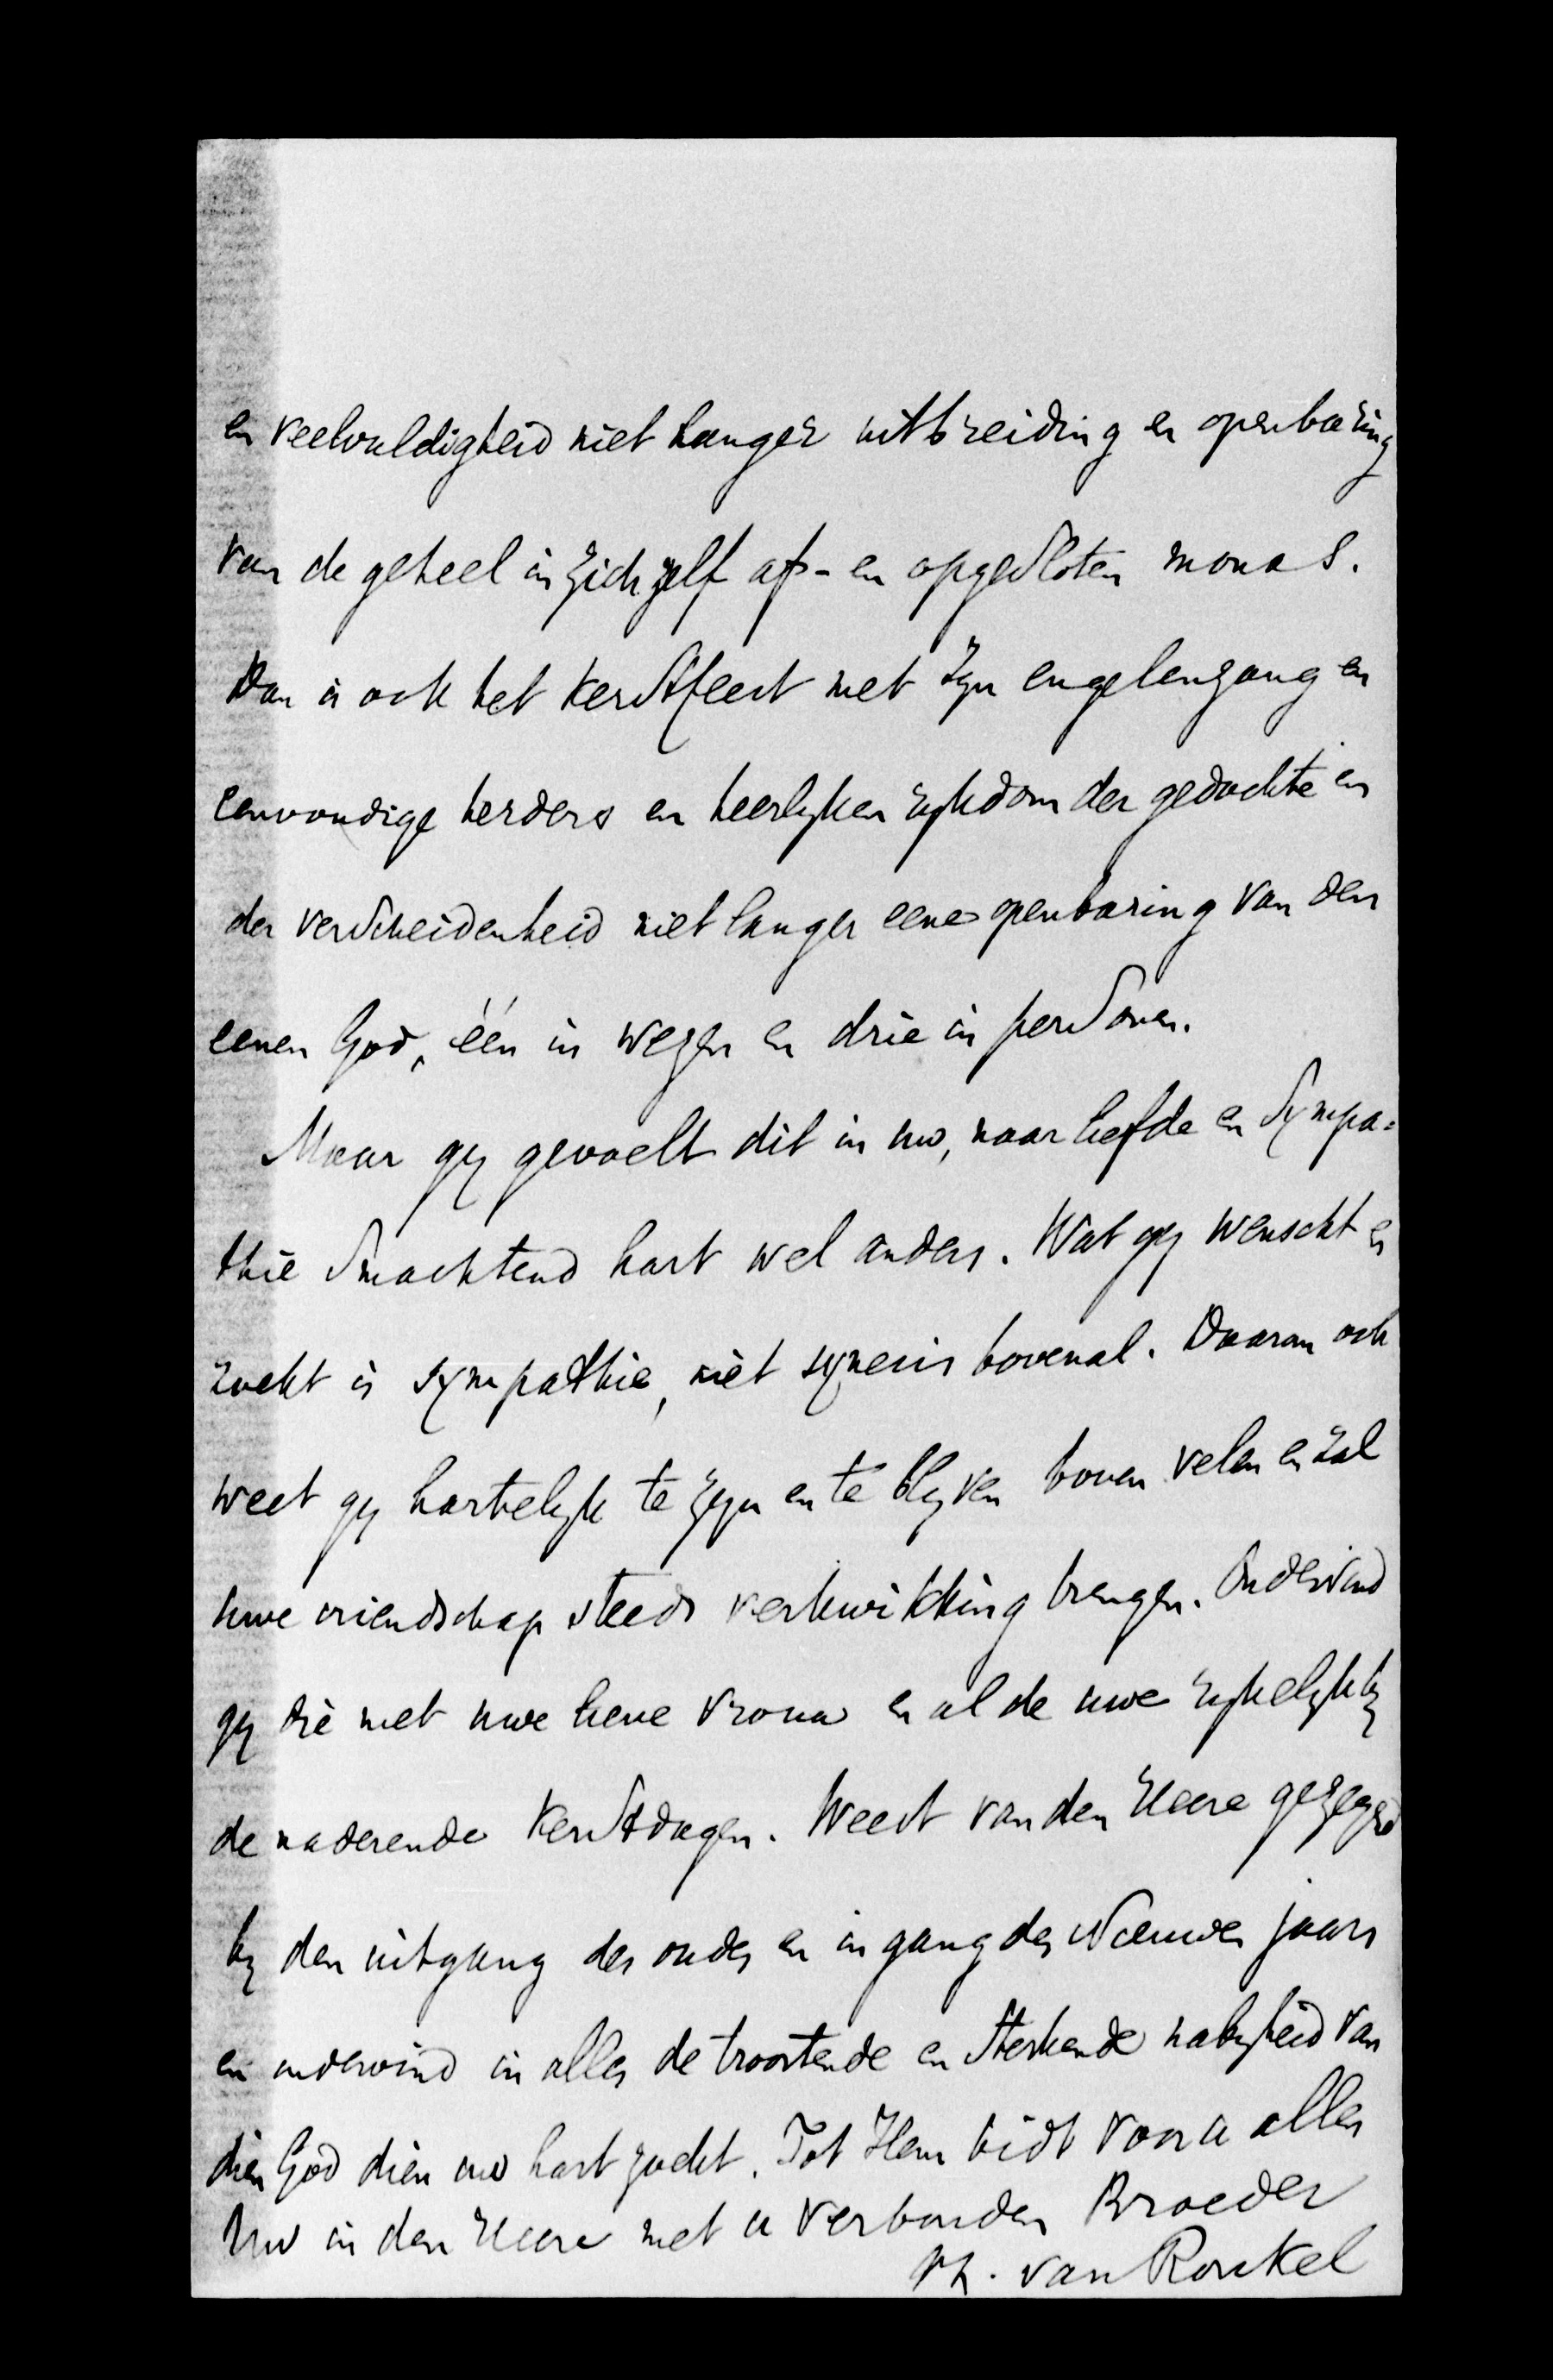 en veelvuldigheid niet langer uitbreiding en openbaring
van de geheel in zich zelf af- en opgesloten monas.
Dan is ook het kerstfeest met zyn engelenzang en
eenvoudige herders en heerlyken rykdom der gedachte en
der verscheidenheid niet langer eene openbaring van den
eenen God, één in wezen en drie in personen.
Maar gy gevoelt dit in uw, naar liefde en sympa=
thie smachtend hart wel anders. Wat gy wenscht en
zoekt is sympathie, niet synesis bovenal. Daarom ook
weet gy hartelyk te zyn en te blyven boven velen en zal
uwe vriendschap steeds verkwikking brengen. Ondervind
gy die met uwe lieve vrouw en al de uwe rykelyk by
de naderende Kerstdagen. Weest van den Heere gezegend
by den uitgang des oudes en ingang des Nieuwen jaars
en ondervind in alles de troostende en sterkende nabyheid van
dien God dien uw hart zoekt. Tot Hem bidt voor u allen
Uw in den Heere met u verbonden Broeder
Ph. van Ronkel